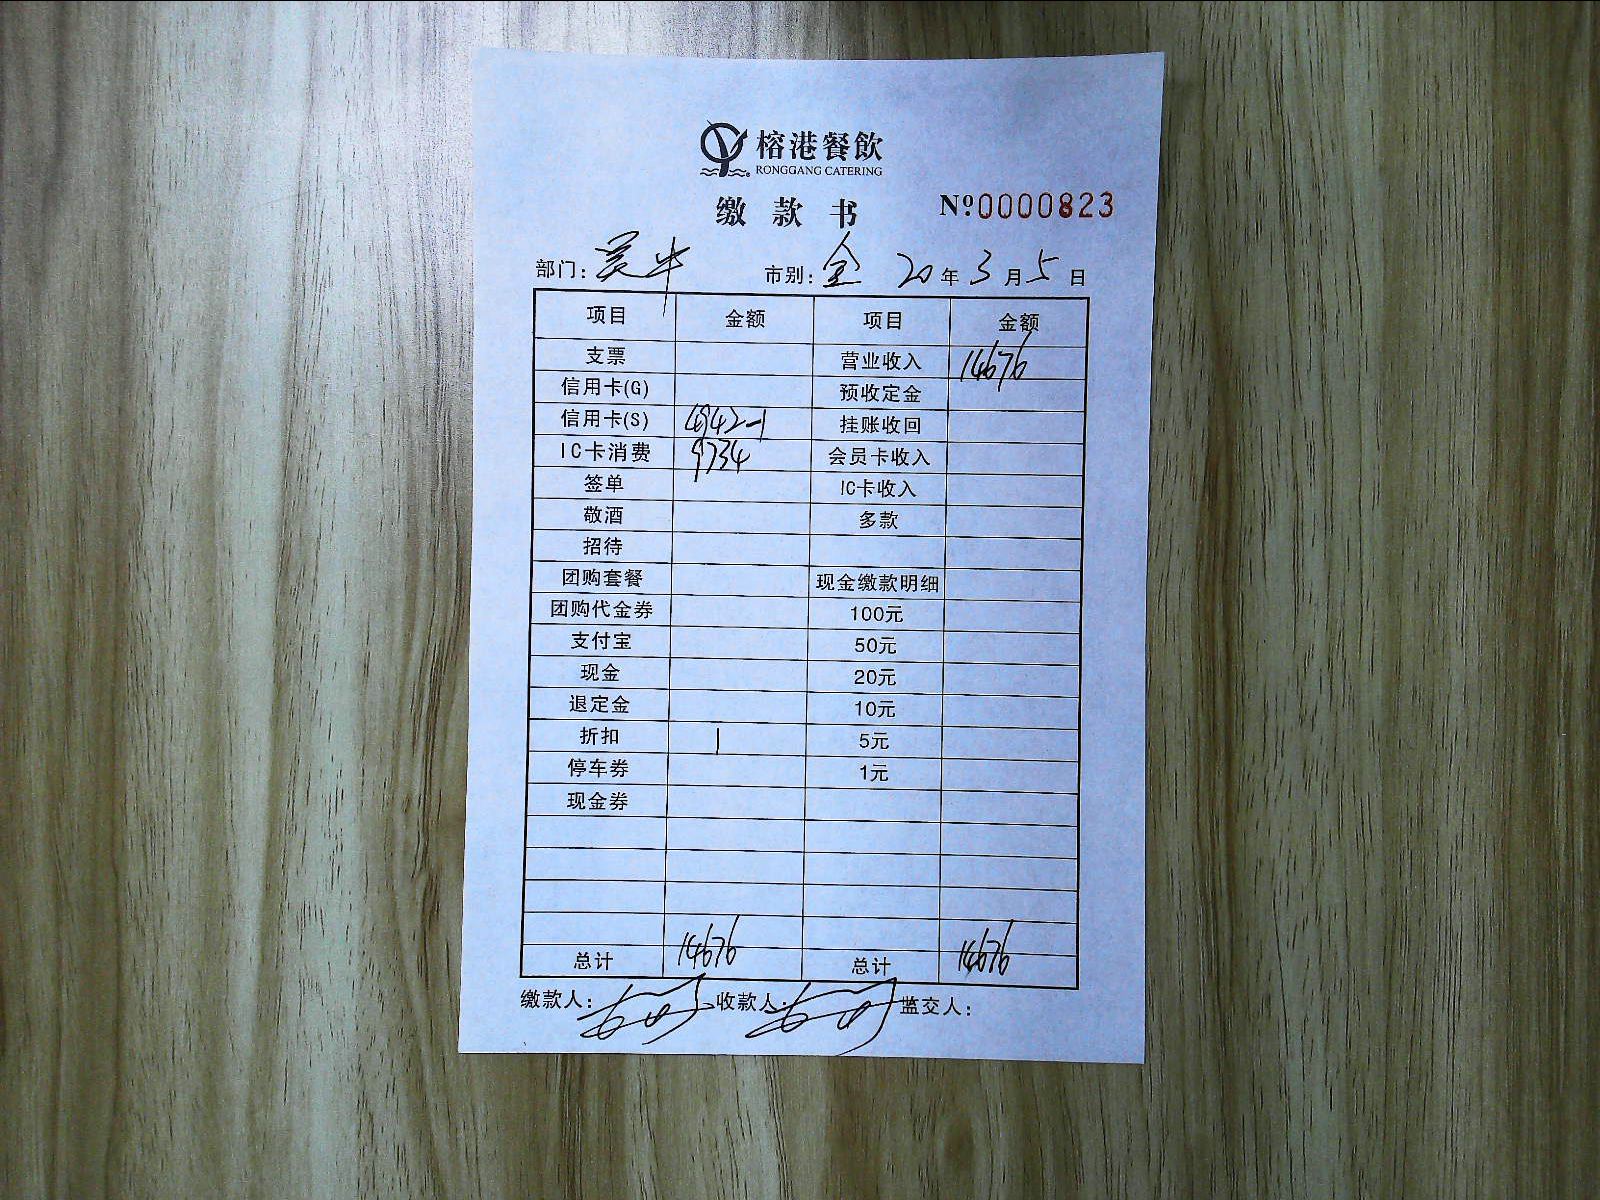 榕港餐飲
RONGGANG CATERING
缴款书 Nº0000823
部门: 美牛 市别: 全 20年3月5日
项目 金额 项目 金额
支票 营业收入 14676
信用卡(G) 预收定金
信用卡(S) 4942-1 挂账收回
IC卡消费 9734 会员卡收入
签单 IC卡收入
敬酒 多款
招待
团购套餐 现金缴款明细
团购代金券 100元
支付宝 50元
现金 20元
退定金 10元
折扣 1 5元
停车券 1元
现金券
总计 14676 总计 14676
缴款人: 收款人: 监交人: